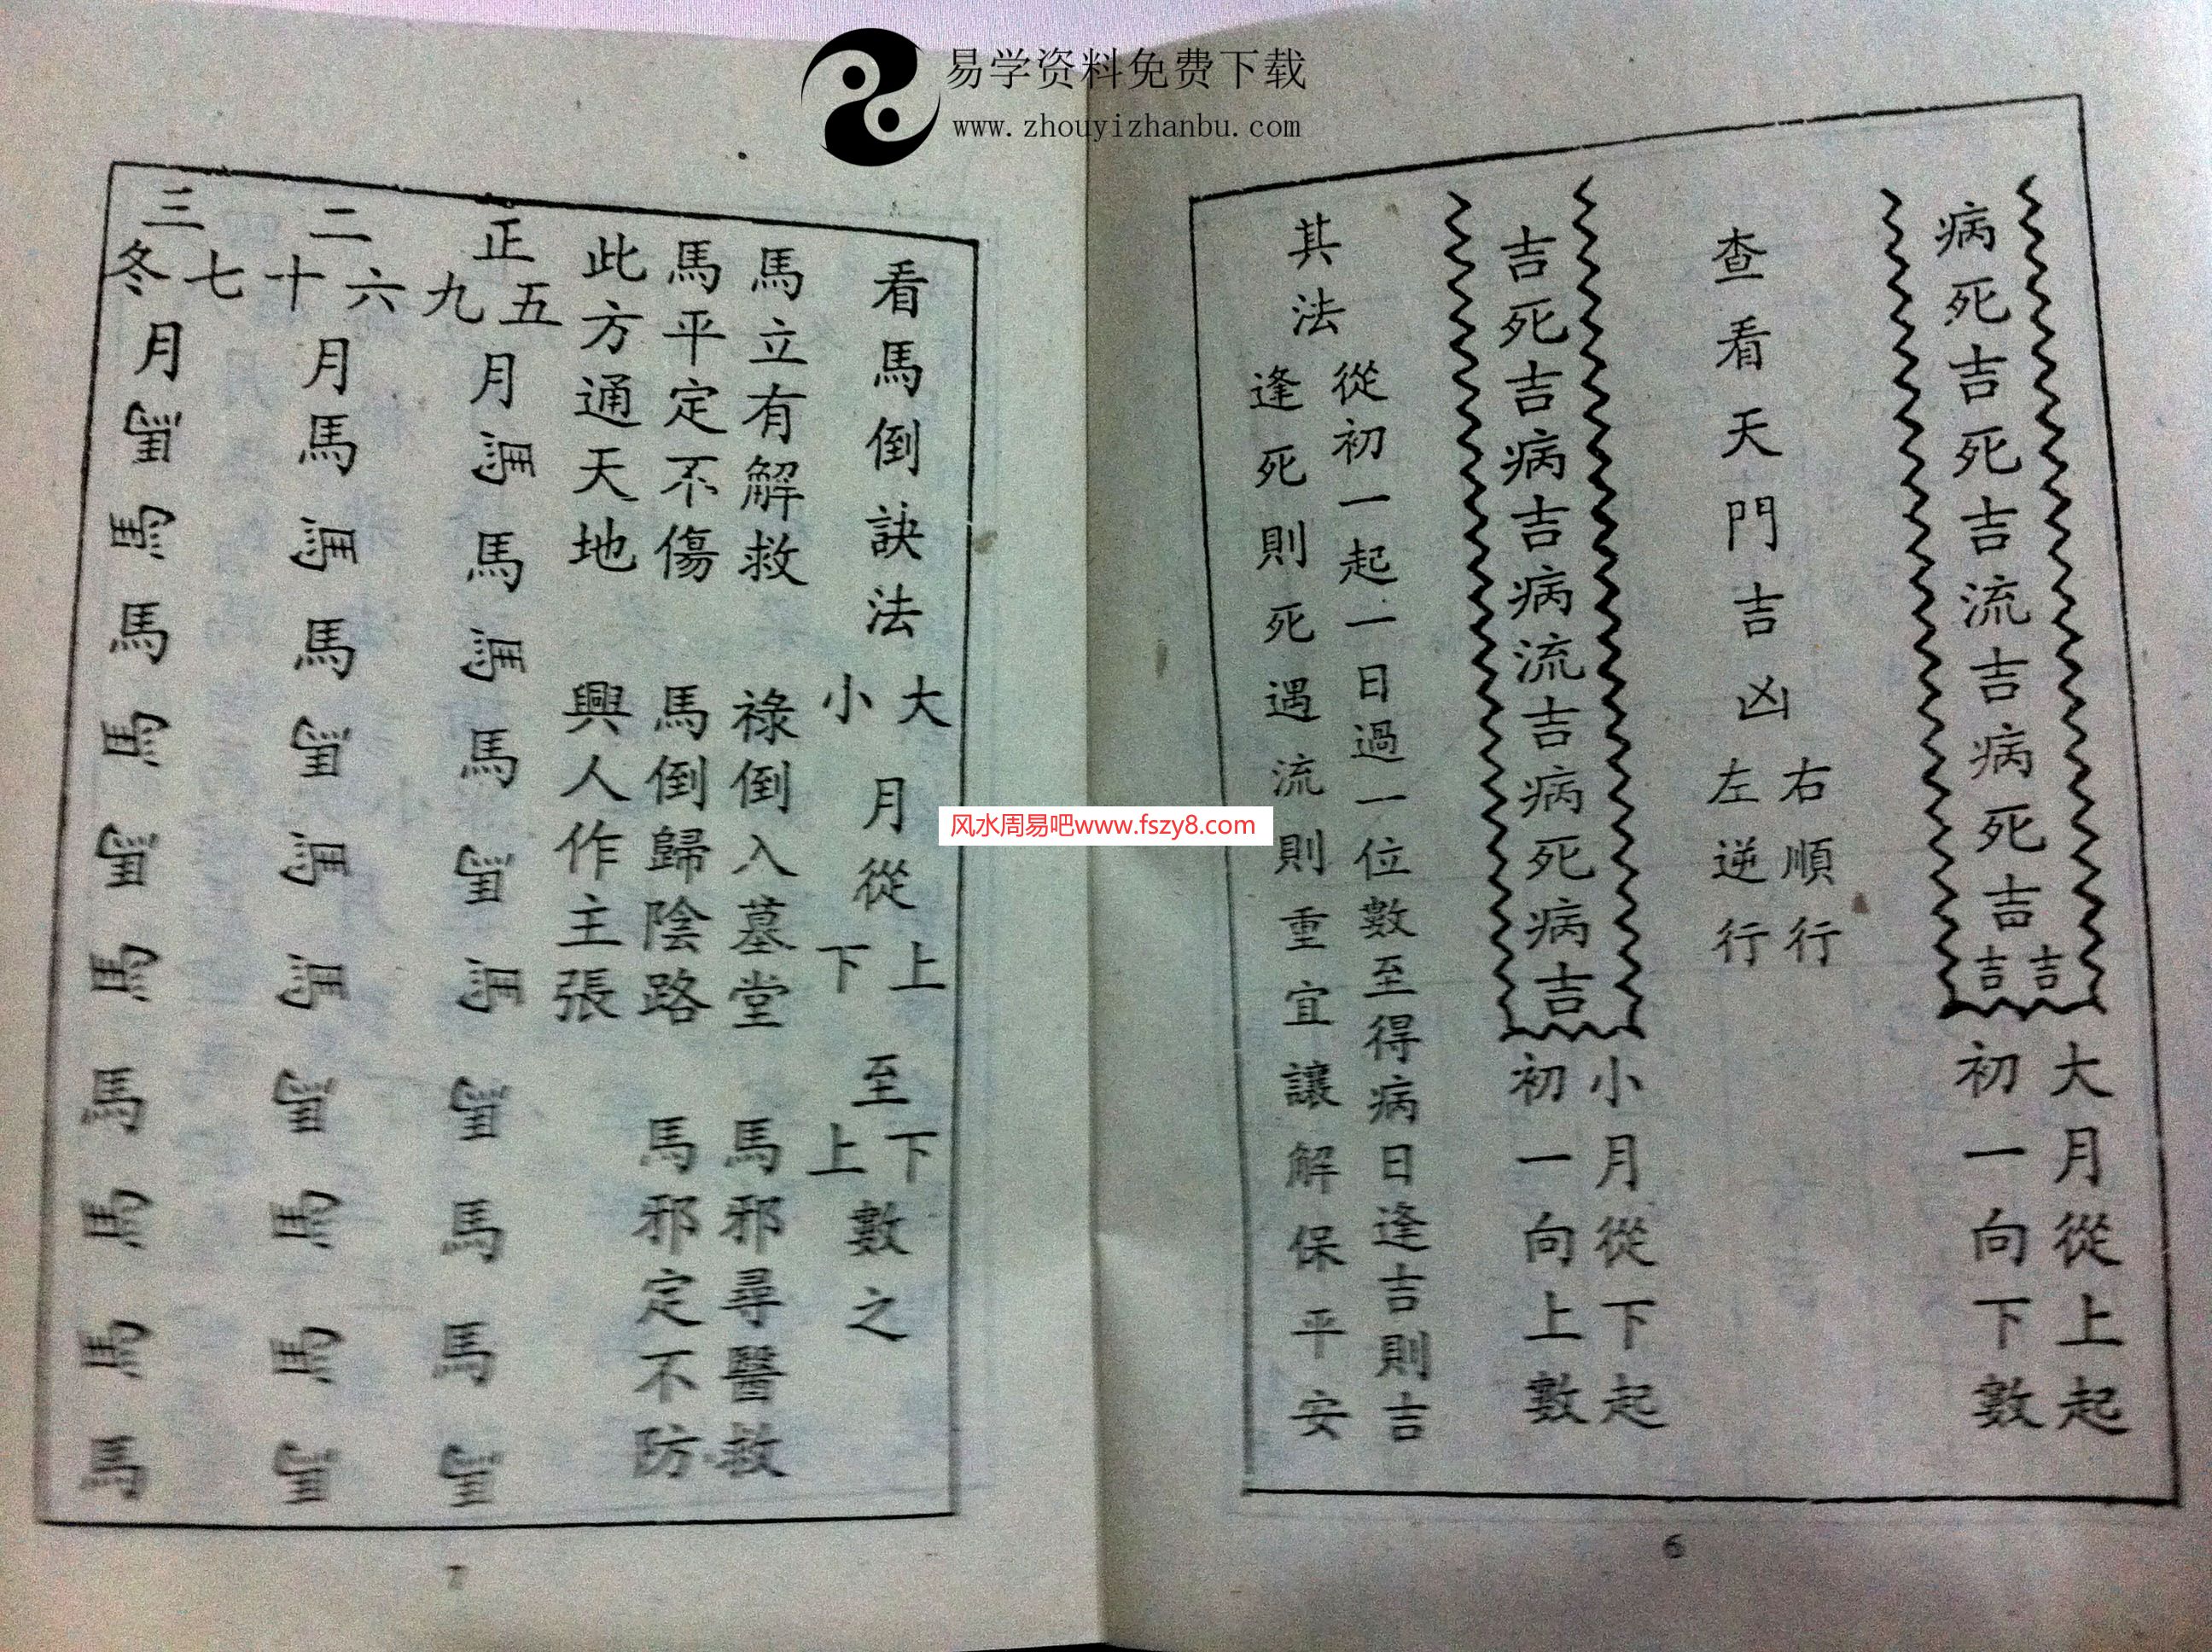 易学资料免费下载
www.zhouyizhanbu.com
病死吉死吉流吉病死吉吉吉
大月從上起
初一向下數
查看天門吉凶
右順行
左逆行
吉死吉病吉病流吉病死病吉
小月從下起
初一向上數
其法
從初一起一日過一位數至得病日逢吉則吉
逢死則死遇流則重宜讓解保平安
6
看馬倒訣法 大小月從上下至下上數之
馬立有解救 祿倒入墓堂 馬邪尋醫救
馬平定不傷 馬倒歸陰路 馬邪定不防
此方通天地 興人作主張
正五九月馬馬馬馬馬馬馬馬馬馬
二六十月馬馬馬馬馬馬馬馬馬馬
三七冬月馬馬馬馬馬馬馬馬馬馬
7
风水周易吧www.fszy8.com